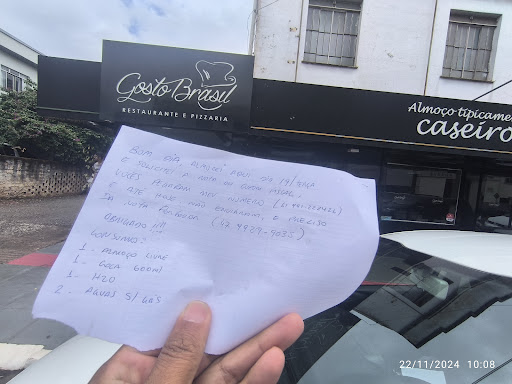 Gosto Brasil
RESTAURANTE E PIZZARIA
Almoço tipicame
caseiro
BOM DIA, ALMOCEI AQUI DIA 19/
E SOLICITEI A NOTA OU CUPOM FISCAL.
VOCÊS PEGARAM MEU NÚMERO
E ATÉ HOJE NÃO ENVIARAM, E PRECISO
DA NOTA POR FAVOR
OBRIGADO !!!
CONSUMO:
1 - ALMOÇO LIVRE
1 - COCA 600ml
1 - H2O
2 - ÁGUAS S/ GÁS
22/11/2024 10:08